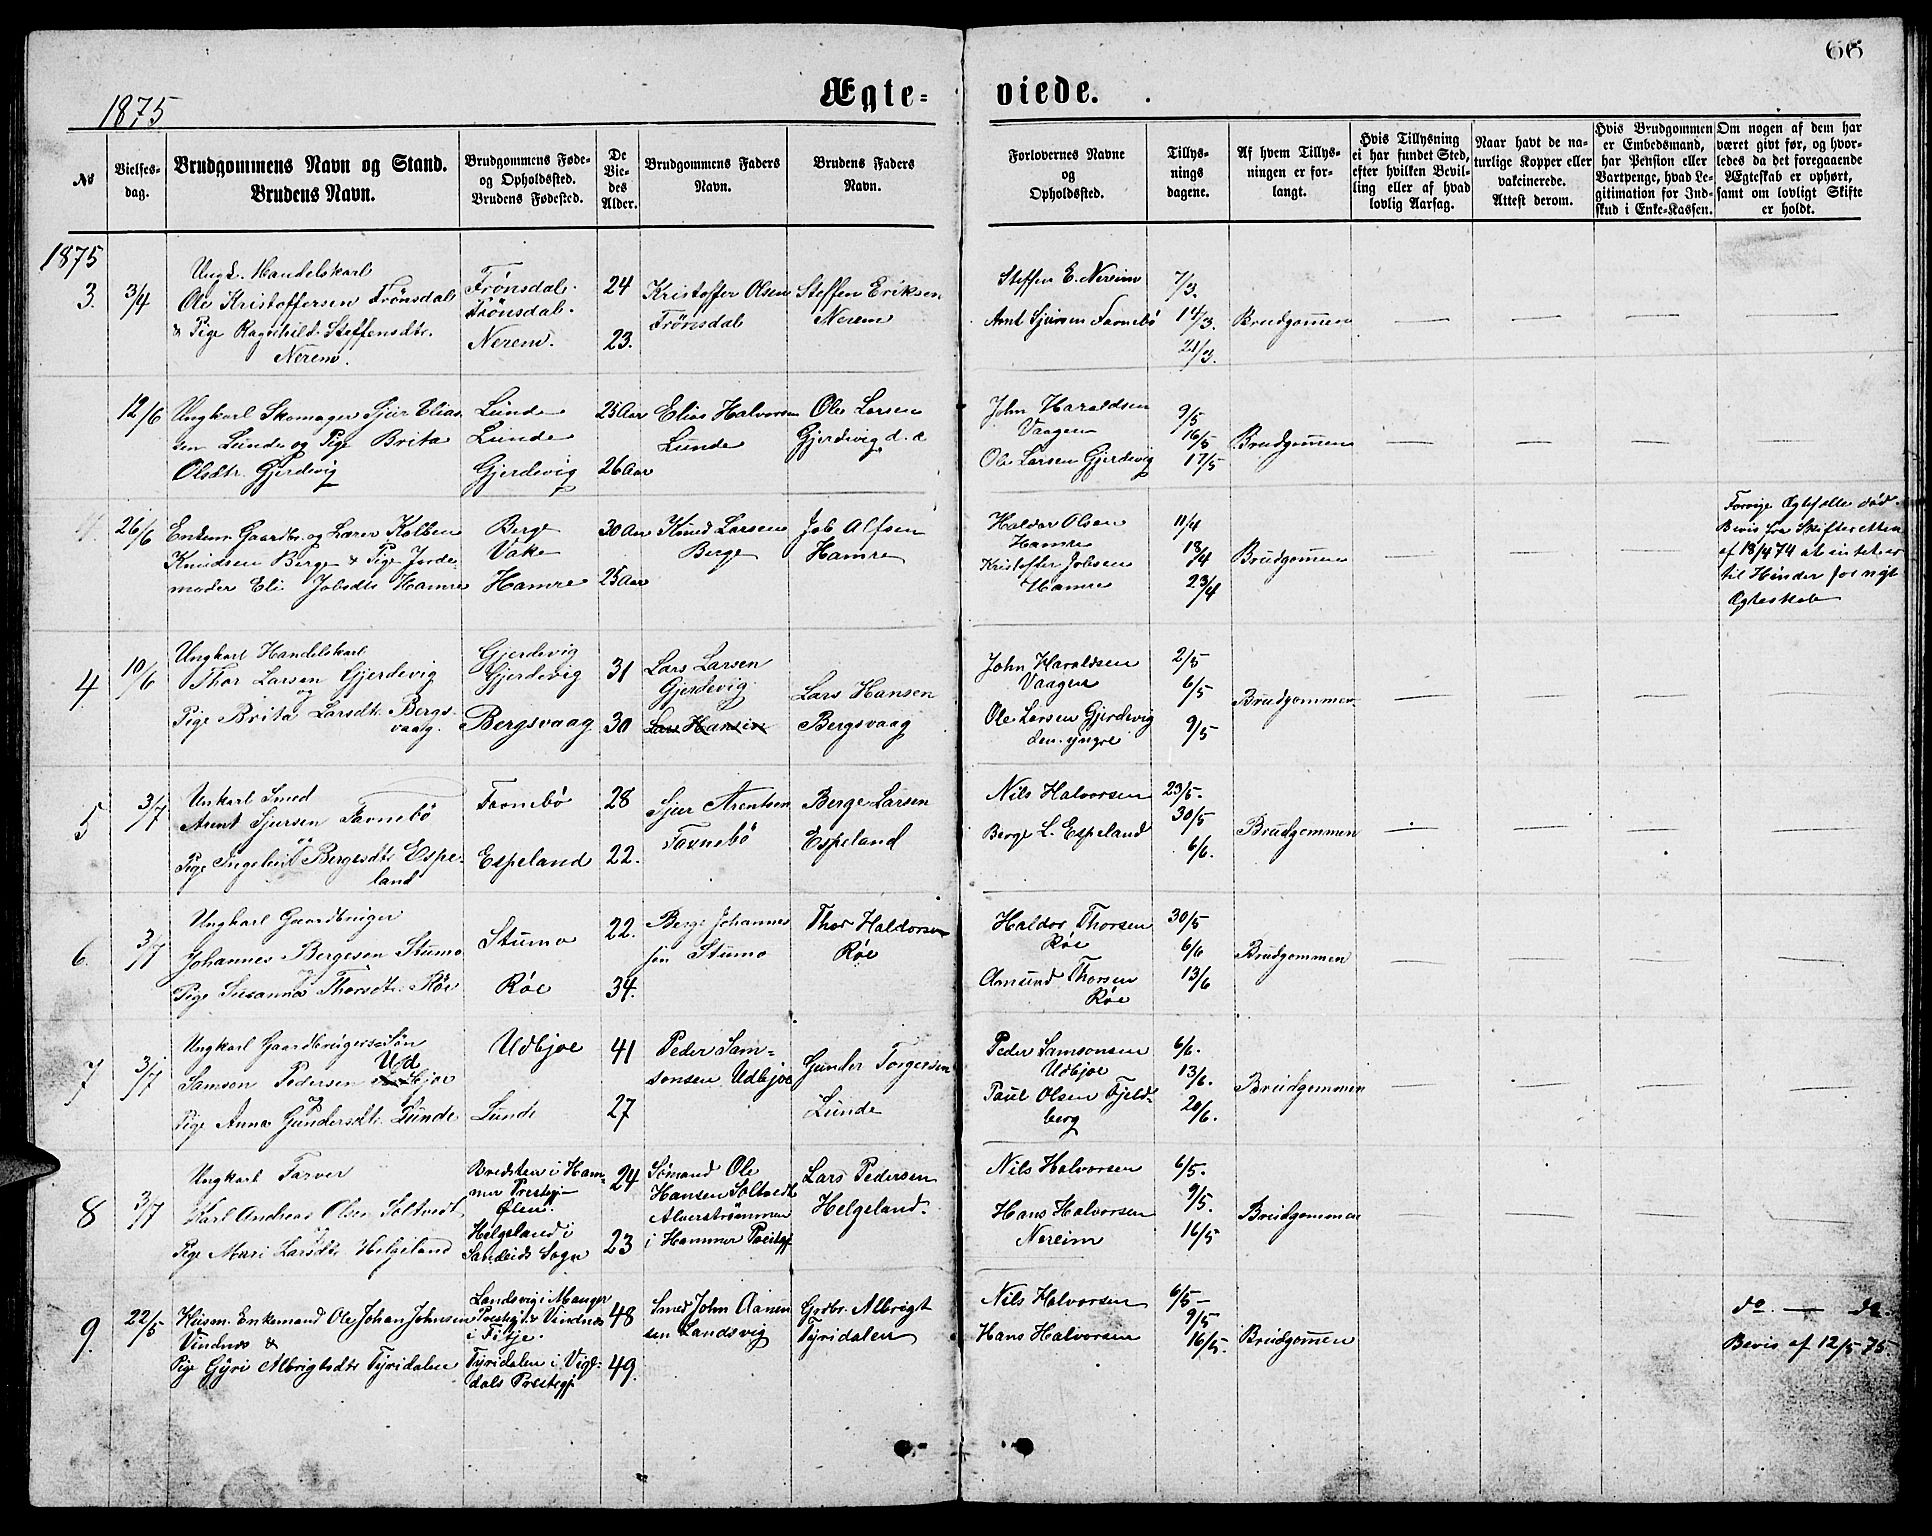 66
1875
Ægte= viede.
№
Vielses-
dag.
Brudgommens Navn og Stand.
Brudens Navn.
Brudgommens Føde-
og Opholdssted.
Brudens Fødested.
De
Vie-
des
Alder.
Brudgommens Faders
Navn.
Brudens Faders
Navn.
Forlovernes Navne
og
Opholdssted.
Tillys-
nings
dagene.
Af hvem Tillys-
ningen er for-
langt.
Hvis Tillysning
ei har fundet Sted,
efter hvilken Bevil-
ling eller af hvad
lovlig Aarsag.
Naar havt de na-
turlige Kopper eller
vakcinerede.
Attest derom.
Hvis Brudgommen
er Embedsmand,
har Pension eller
Vartpenge, hvad Le-
gitimation for Ind-
skud i Enke-Kassen.
Om nogen af dem har
været givt før, og hvor-
ledes da det foregaaende
Ægteskab er ophørt,
samt om lovligt Skifte
er holdt.
1875
3.
3/4
Ungk. Handelskarl
Ole Kristoffersen Trönsdal
& Pige Ragnhild Steffensdtr.
Nerem.
Trönsdal.
Trönsdal.
Nerem.
24
23.
Kristoffer Olsen
Trönsdal
Steffen Eriksen
Nerem
Steffen E. Nereim
Arnt Sjursen Favnebö
7/3.
14/3.
21/3.
Brudgommen
12/6
Ungkarl Skomager Sjur Elias
sen Lunde og Pige Brita
Olsdtr Gjerdevig
Lunde
Lunde
Gjerdevig
25 Aar
26 Aar
Elias Halvorsen
Lunde
Ole Larsen
Gjerdevig d. æ
John Haraldsen
Vaagen
Ole Larsen Gjerdevig
9/5
16/5
17/5
Brudgommen
26/6
Enkem Gaardbr. og Lærer Kolben
Knudsen Berge & Pige Jorde
moder Eli Jobsdtr Hamre
Berge
Vake
Hamre
30 Aar
25 Aar
Knud Larsen
Berge
Job Alfsen
Hamre
Haldor Olsen
Hamre
Kristoffer Jobsen
Hamre
11/4
18/4
23/4
Brudgommen
Forrige Ægtefælle död
Bevis fra Skifteretten
af 18/4 74 at intet er
til Hinder for nyt
Ægteskab
4
10/6
Ungkarl Handelskarl
Thor Larsen Gjerdevig
og
Pige Brita Larsdtr. Bergs-
vaag.
Gjerdevig
Gjerdevig
Bergsvaag
31
30
Lars Larsen
Gjerdevig
Lars Hansen
Lars Hansen
Bergsvaag
John Haraldsen
Vaagen
Ole Larsen Gjerdevig
den yngre
2/5
6/5
9/5
Brudgommen
5
3/7
Unkarl Smed
Arent Sjursen Favnebö
og
Pige Ingeleiv Bergesdtr Espe-
land
Favnebö
Espeland
28
22.
Sjur Arentsen
Favnebö
Berge Larsen
Espeland
Nils Halvorsen
Berge L. Espeland
23/5.
30/5
6/6.
Brudgommen
6.
3/7
Ungkarl Gaardbruger
Johannes Bergesen Stumo
og
Pige Susanna Thorsdtr. Röe
Stumo
Röe
22.
34.
Berge Johannes
sen Stumo
Thor Haldorsen
Röe
Haldor Thorsen
Röe
Amund Thorsen
Röe
30/5
6/6
13/6
Brudgommen
7
3/7
Ungkarl Gaardbrugers Sön
Ud
Samson Pedersen bjoe
og
Pige Anna Gundersdtr. Lunde
Udbjoe
Lunde
41
27
Peder Sam=
sonsen Udbjoe
Gunder Torgersen
Lunde
Peder Samsonsen
Udbjoe
Paul Olsen Fjeld-
berg
6/6.
13/6.
20/6.
Brudgommen
8
3/7
Ungkarl Farver
Karl Andreas Olsen Soltvedt
og
Pige Mari Larsdtr Helgeland
Bredsten i Ham-
mer Prestgj-
Ölen.
Helgeland i
Sandeids Sogn
24
23
Sömand Ole
Hansen Soltvedt
Alverströmmen
i Hammer Prestgj.
Lars Pedersen
Helgeland.
Nils Halvorsen
Hans Halvorsen
Nereim
6/5.
9/5.
16/5
Brudgommen
9.
22/5
Husm. Enkemand Ole Johan Johnsen
Vindnes &
Pige Gÿri Albrigtsdtr Tyridalen
Landsvig i Manger
Prestgj. & Vindnes
i Fitje.
Tyridalen i Vig-
dals Prestegj.
48
49.
Smed John Aanen
sen Landsvig
Grdbr. Albrigt
Tyridalen
Nils Halvorsen
Hans Halvorsen
6/5-
9/5
16/5.
Brudgommen
do. — do.
Bevis af 12/5 75.